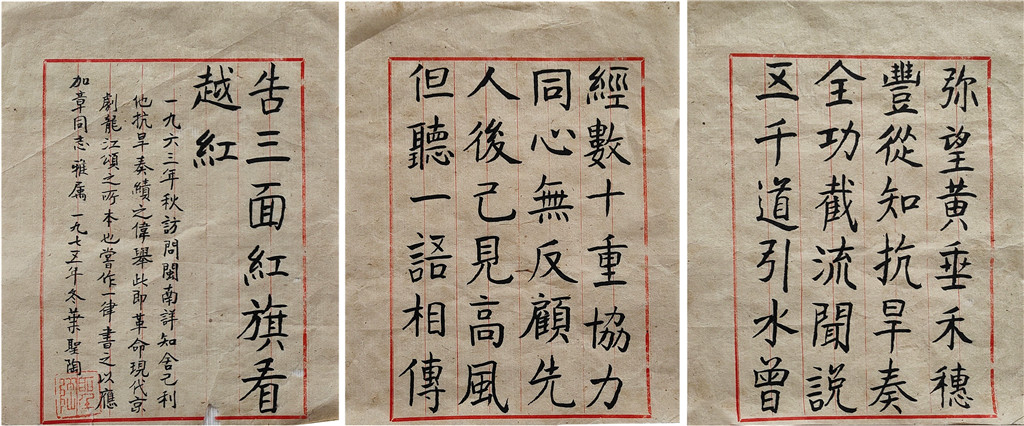 弥望黃垂禾穗
豐從知抗旱奏
全功截流聞説
五千道引水曾
經數十重協力
同心無反顧先
人後己見高風
但聽一語相傳
告三面紅旗看
越紅
一九六三年秋訪問閩南詳知舍己利
他抗旱奏績之偉舉此即革命現代京
劇龍江頌之所本也嘗作一律書之以應
加章同志雅属 一九七五年冬葉聖陶
聖陶